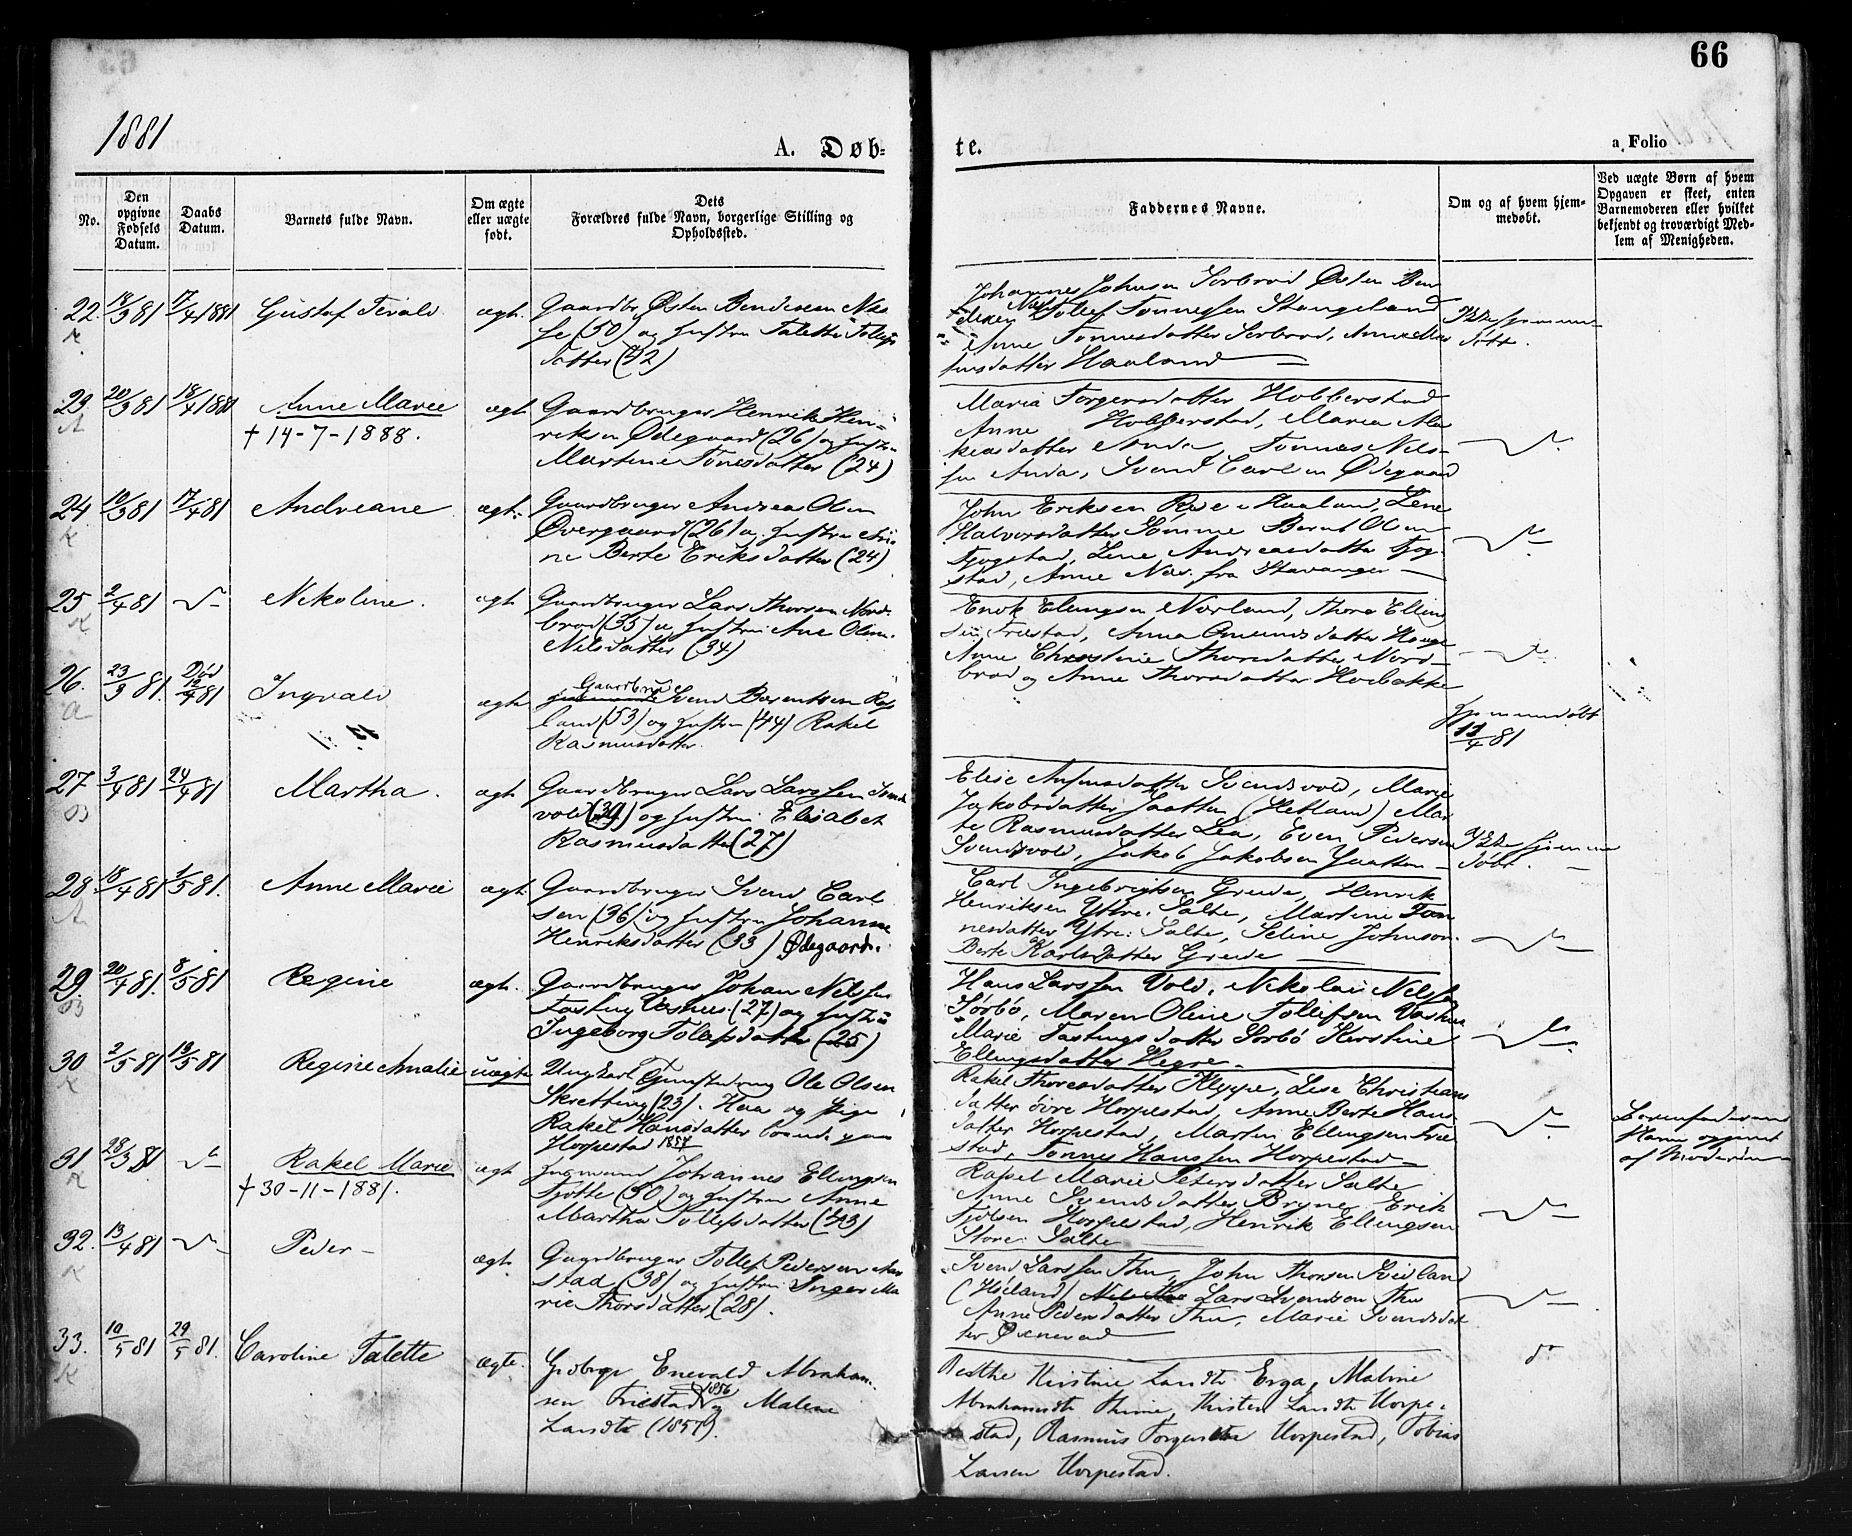 66
1881
A. Døb-
te.
a. Folio
No.
Den opgivne Fødsels Datum.
Daabs Datum.
Barnets fulde Navn.
Om ægte eller uægte født.
Dets
Forældres fulde Navn, borgerlige Stilling og
Opholdssted.
Faddernes Navne.
Om og af hvem hjem-
medøbt.
Ved uægte Børn af hvem
Opgaven er skeet, enten
Barnemoderen eller hvilket
bekjendt og troværdigt Med-
lem af Menigheden.
22. 18/3 81 17/4 1881 Gustaf Tivald ægt. Gaardbr. Østen Bendixen Næs-
he (50) og Hustru Taletta Tollefs
datter (42)
Johannes Johnsen Sorbrød Østen Ben
dixen Næshe Tollef Tønnessen Stangeland
Anne Tønnesdatter Sorbrød, Anna
datter Haaland
Ikke hjemme-
døbt.
23. 20/3 81 18/4 1881 Anne Marie ægt Gaardbruger Henrik Hen-
† 14-7-1888. riksen Ødegaard (26) og Hustru
Martine Tønesdatter (24)
Maria Torgersdatter Hobberstad
Anne Hobberstad, Maria
datter Anda, Tønnes Nils-
sen Anda, Svend Carlsen Ødegaard
24 10/3 81 17/4 81 Andreane ægt. Gaardbruger Andreas Olsen
Øvergaard (26) og Hustru
Berte Eriksdatter (24)
John Eriksen Ree Haaland, Lene
Halvorsdatter Sømme Bernt Olsen
Fjogstad, Lene Andreasdatter Fjog-
stad, Anne Næs fra Stavanger
25 2/4 81 Nikoline. ægt Gaardbruger Lars Thorsen Nord-
brød (35) og Hustru Ane Olene
Nilsdatter (34)
Enok Elingsen Norland, Thore
Friestad, Anna Omundsdatter Hauge
Anne Christine Thorsdatter Nord-
brød og Anne Thorsdatter Holbakke
26. 23/3 81. Død 12/4 81 Ingvald ægt Gaardbru Svend Berentsen
land (53) og Hustru (44) Rakel
Rasmusdatter.
Hjemmedøbt
11/4 81
27 3/4 81 24/4 81 Martha. ægt Gaardbruger Lars Larssen Svends
vold (39) og Hustru Elisabet
Rasmusdatter (27)
Elise datter Svendsvold, Marie
Jakobsdatter Saatten (Hetland) Mar
te Rasmusdatter Lea, Even Pedersen
Svendsvold, Jakob Jakobsen Saatten
Ikke hjemme
døbt.
28 18/4 81 1/5 81. Anne Marie ægt. Gaardbruger Svend Carl
sen (36) og Hustru Johanne
Henriksdatter (33) Ødegaard.
Carl Ingebrigtsen Grude, Henrik
Henriksen Yttre: Salte, Martine Tøn
nesdatter Yttre: Salte, Seline Johnson
Berte Karlsdatter Grude
29 20/4 81. 8/5 81 Regine ægt. Gaardbruger Johan Nilssen
Fasting Vasnes (27) og Hustru
Ingeborg Tollefsdatter (25)
Hans Larssen Vold, Nikolai Nilssen
Sørbø, Maren Oline Tollefsen Vashus
Marie Fastingsdatter Sorbø Kirstine
Ellingsdatter Hegre
30 2/5 81 13/5 81 Regine Amalie uægte Ungkarl Ole Olsen
Skretting (23). Kaa og Pige
Rakel Hansdatter boende paa
Horpestad 1857
Rakel Thoresdatter Kleppe, Lise Christians
datter øvre Horpestad, Anne Berte Hans-
datter Horpestad, Marten Ellingsen Frie
stad, Tønnes Hanssen Horpestad
Barnefaderens
Navn opgivet
af Moderen
31 28/3 81 Rakel Marie ægt Husmand Johannes Ellingsen
† 30-11-1881. Tjøtte (30) og Hustru Anne
Martha Tollefsdatter (43)
Rakel Marie Petersdatter Salte
Anne Svendsdatter Bryne, Erik
Horpestad, Henrik Ellingsen
Store: Salte
32. 13/4 81 Peder ægt. Gaardbruger Tollef Pedersen
stad (38) og Hustru Inger Ma
rie Thorsdatter (28).
Svend Larssen Thu, John Thorsen
(Høiland) Lars Svendsen Thu
Anne Pedersdatter Thu, Marie Svendsdat
ter Øxnevad
33. 10/5 81 29/5 81. Caroline Talette ægte. Grdbrgr Enevald Abraham-
sen Friestad 1856 og Malene
Larsdtr (1857).
Berthe Kirstine Larsdtr Erga, Maline
Abrahamsdtr Thime, Kirsten Larsdtr Horpe-
stad, Rasmus Torgersen Horpestad, Tobias
Larsen Horpestad.
do